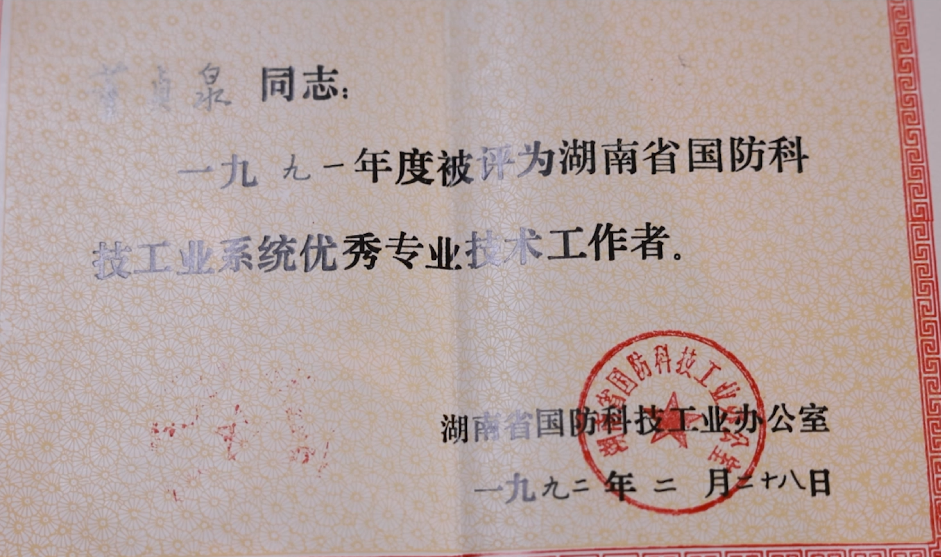 贞泉 同志：
一九九一年度被评为湖南省国防科
技工业系统优秀专业技术工作者。
湖南省国防科技工业办公室
一九九二年二月二十八日
湖南省国防科技工业办公室